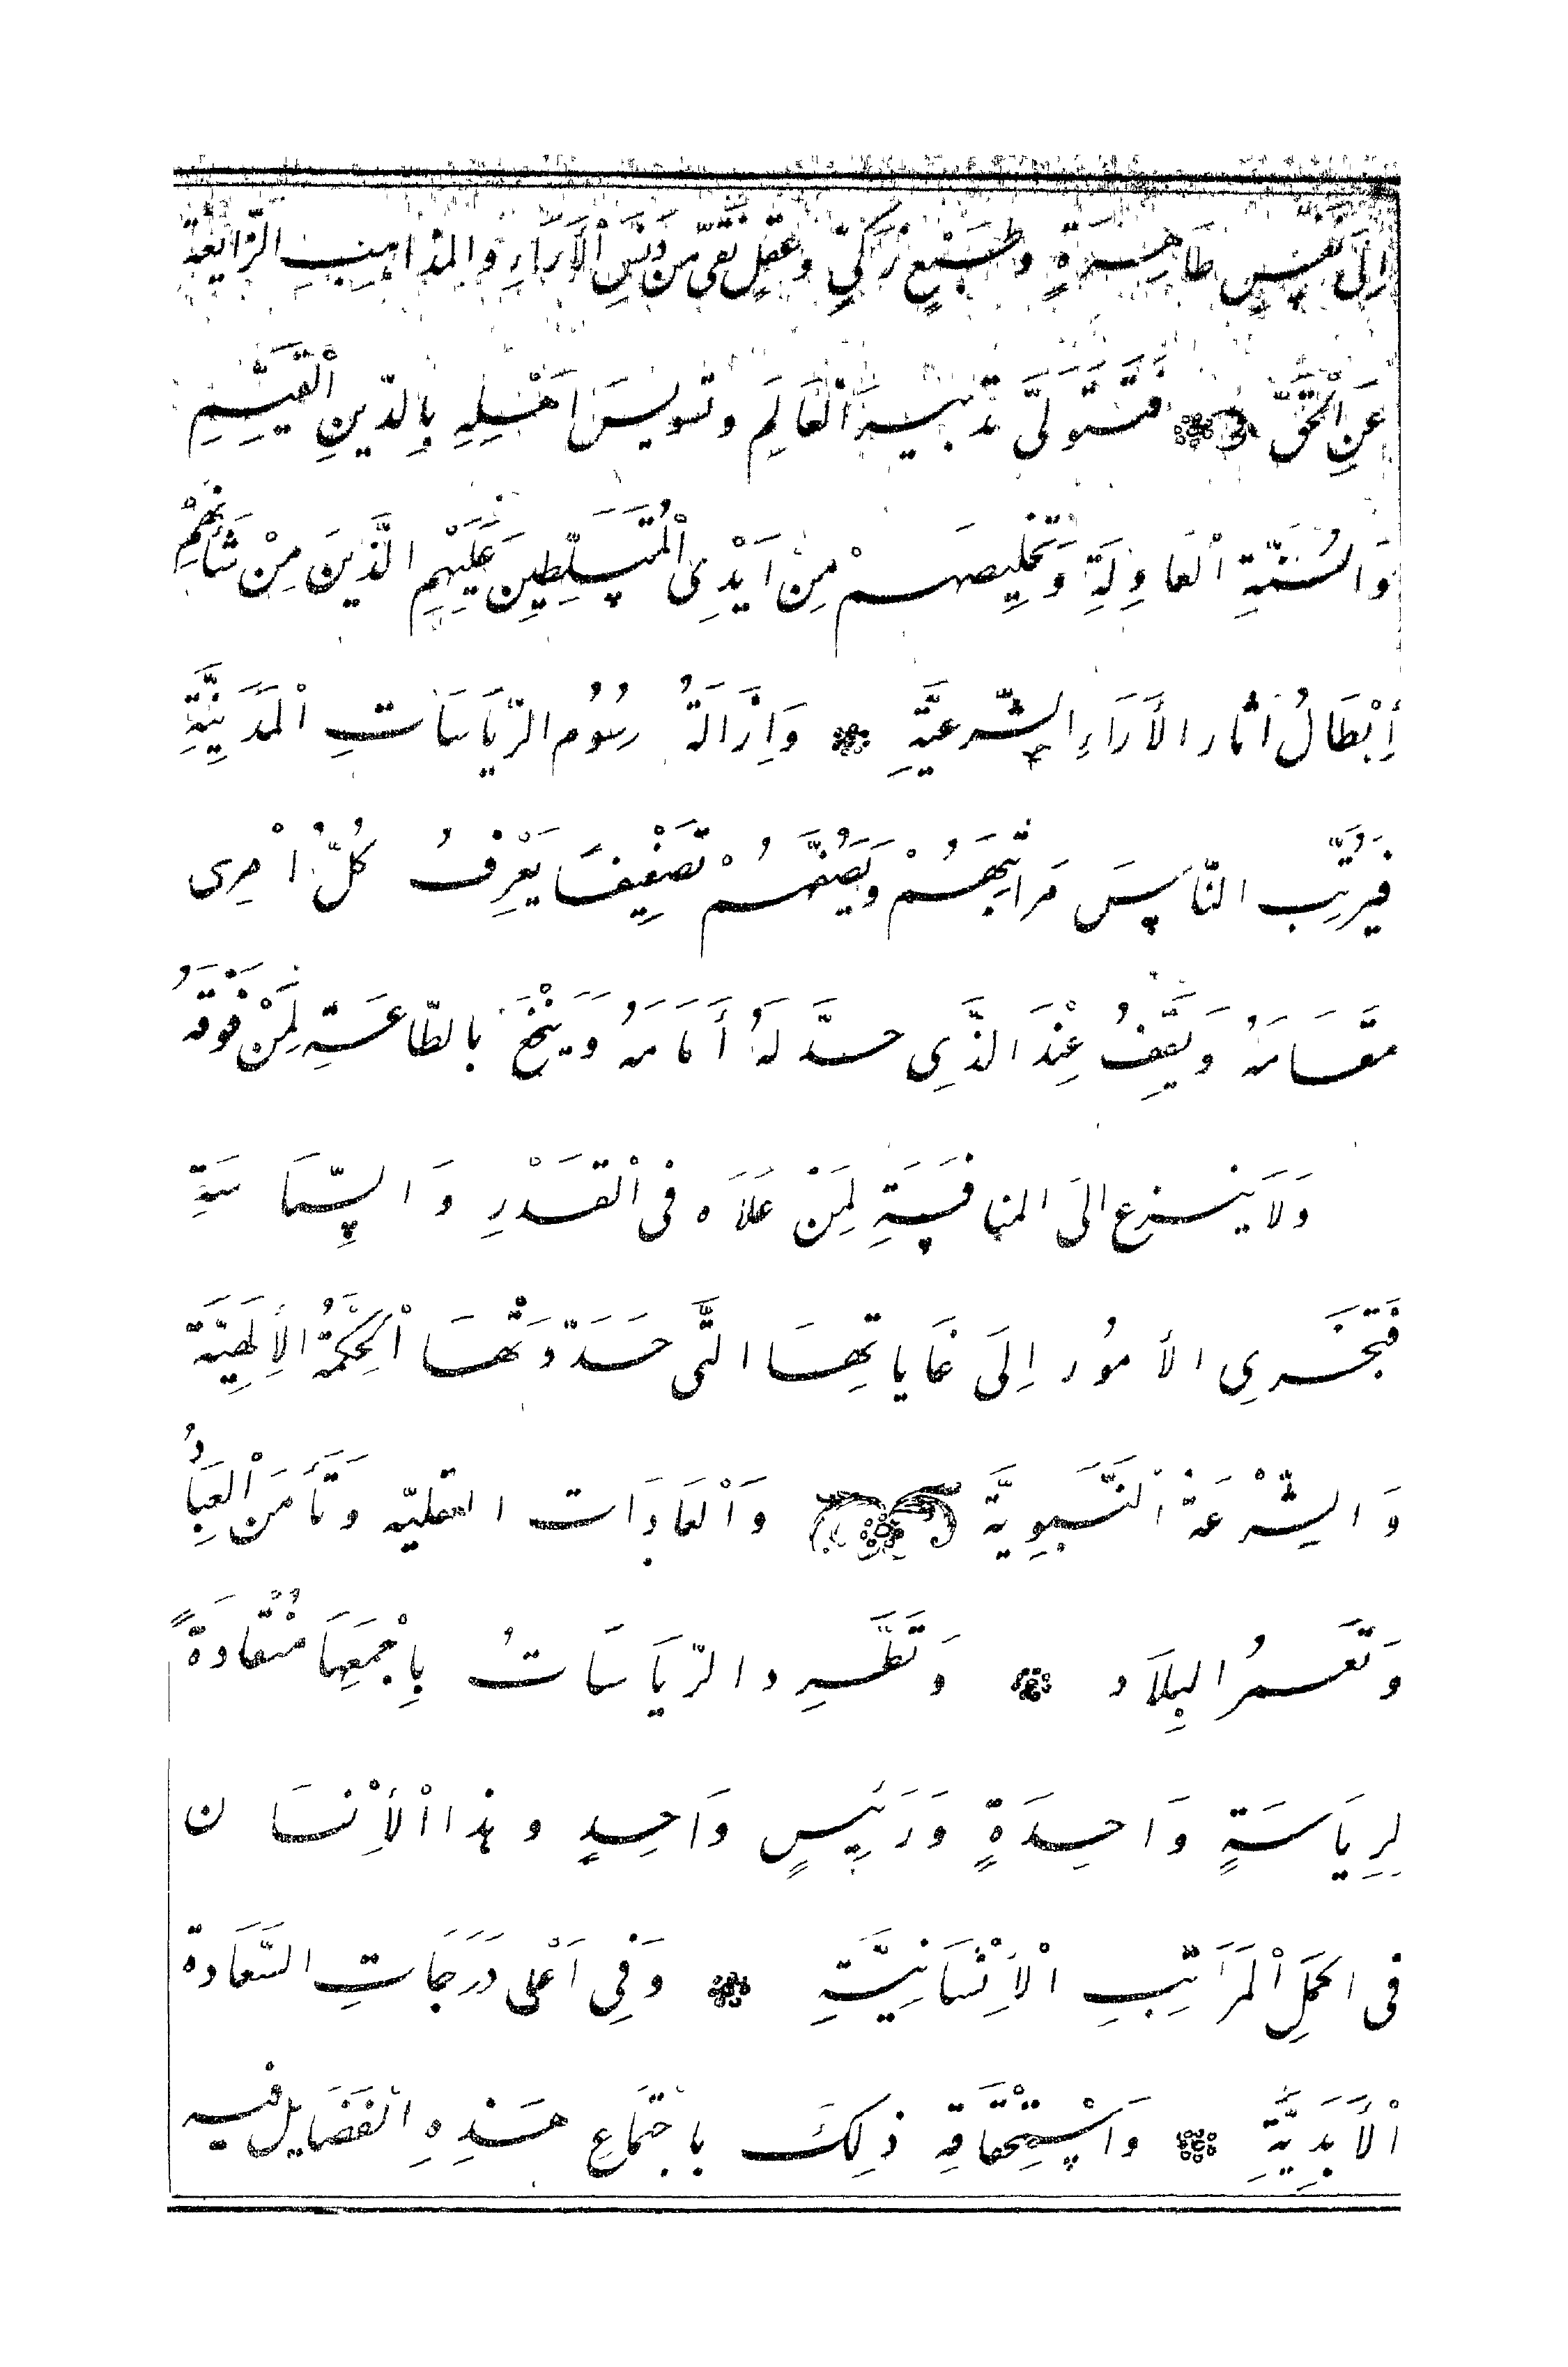 اِلَى نَفْسٍ طَاهِرَةٍ وطَبْعٍ زَكَيٍّ وعَقِلٍ نَقيّ مِن دَنَسِ الْأَرَاءِ والمذاهِبِ الزَّايغَة
عَنِ الْحَقّ فَتَتَوَلَّى تَدبيرَ الْعَالَمِ وتسويسَ اَهْلِهِ بِالدّينِ الْقَيِّمِ
وَالسُنَّةِ الْعَادِلَةِ وَتَخْلِيصهمْ مِنْ اَيْدِى الْمُتَسَلِّطِينَ عَلَيْهِم الَّذيِنَ مِنْ شَأنِهِمْ
اِبْطَالُ اثار الأَرَاءِ الشّرعيَّةِ وَاِزَالَةُ رسُوُم الرّيَاسَاتِ الْمَدَنِيَّةِ
فَيُرَتِّب النَّاسَ مَرَاتِبَهُمْ وَيُصَنّفهُمْ تَصْنِيفًا يَعْرِفُ كُلُّ امْرِى
مَقَامَهُ وَيَقِفُ عِنْدَ الَّذِى حدَّ لَهُ أَمَامَهُ وَيَنْخَعَ بالطّاعَةِ لِمَنْ فَوْقَهُ
وَلَا ينزع الىَ المنافَسَةِ لِمَنْ عَلَاَه فى الْقَدْرِ وَالسِّيَاسَةِ
فَتجْرِى الأمُور اِلَى غَاياتِهَا الَّتى حَدَّدَتْهَا الْحِكْمَةُ الْأِلَهِيَّة
وَالشِّرْعَة النَّبَوِيَّة وَالْعَادَات العقليّه وَتَأمَنَ الْعِبَادُ
وَتَعمرُ البِلَاَد وَتَطَّرِد الرّيَاسَاتُ بِاَجْمَعِهَا مُنْقَادَةً
لِرِيَاسَةٍ وَاحِدَةٍ وَرَئِيسٍ وَاحِدٍ وهذا الْأِنْسَان
فى اكمَلِ الْمَرَاتِبِ الْاِنْسَانِيَّةِ وَفِى اَعْلى دَرَجَاتِ السَّعَادة
الْأَبَدِيَّةِ وَاسْتِحْقَاقِه ذلِكَ باجتمَاعِ هَذِهِ الفَضَايل فيه